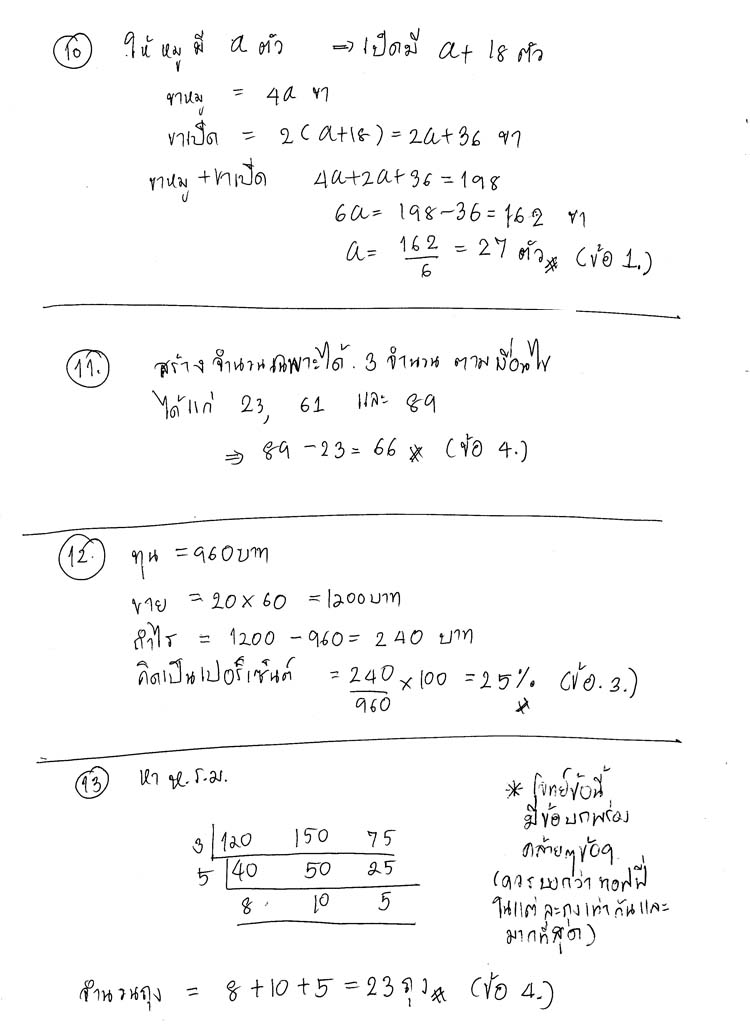 10 ให้ หมู มี a ตัว ⇒ เป็ดมี a + 18 ตัว
ขาหมู = 4a ขา
ขาเป็ด = 2(a+18) = 2a+36 ขา
ขาหมู + ขาเป็ด 4a+2a+36 = 198
6a = 198-36 = 162 ขา
a = 162/6 = 27 ตัว* (ข้อ 1.)
11. สร้างจำนวนเฉพาะได้ 3 จำนวน ตามเงื่อนไข
ได้แก่ 23, 61 และ 89
⇒ 89 - 23 = 66 * (ข้อ 4.)
12. ทุน = 960 บาท
ขาย = 20 × 60 = 1200 บาท
กำไร = 1200 - 960 = 240 บาท
คิดเป็นเปอร์เซ็นต์ = 240/960 × 100 = 25% * (ข้อ. 3.)
13 หา ห.ร.ม.
3 120 150 75
5 40 50 25
8 10 5
* โจทย์ข้อนี้
มีข้อบกพร่อง
คล้ายๆ ข้อ 9
(ควรบอกว่า ทอฟฟี่
ในแต่ละถุงเท่ากันและ
มากที่สุด)
จำนวนถุง = 8 + 10 + 5 = 23 ถุง* (ข้อ 4.)